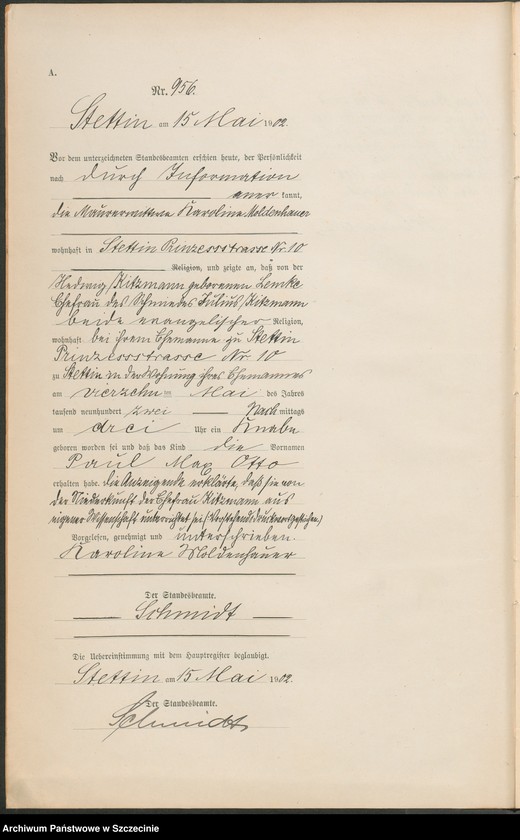 A.
Nr. 956.
Stettin am 15 Mai 1902.
Vor dem unterzeichneten Standesbeamten erschien heute, der Persönlichkeit
nach durch Information
aner kannt,
die Maurerwittwe Karoline Moldenhauer
wohnhaft in Stettin Prinzessstrasse Nr. 10
Religion, und zeigte an, daß von der
Hedwig Kitzmann geborenen Lemke
Ehefrau des Schmiedes Julius Kitzmann
beide evangelischer Religion,
wohnhaft bei ihrem Ehemanne zu Stettin
Prinzessstrasse Nr. 10
zu Stettin in der Wohnung ihres Ehemannes
am vierzehn ten Mai des Jahres
tausend neunhundert zwei Nach mittags
um drei Uhr ein Knabe
geboren worden sei und daß das Kind die Vornamen
Paul Max Otto
erhalten habe. Die Anzeigende erklärte, daß sie von
der Niederkunft der Ehefrau Kitzmann aus
eigener Wissenschaft unterrichtet sei (Vorstehend Druckwort gestrichen.)
Vorgelesen, genehmigt und unterschrieben.
Karoline Moldenhauer
Der Standesbeamte.
Schmidt
Die Uebereinstimmung mit dem Hauptregister beglaubigt.
Stettin am 15 Mai 1902.
Der Standesbeamte.
Schmidt
Archiwum Państwowe w Szczecinie